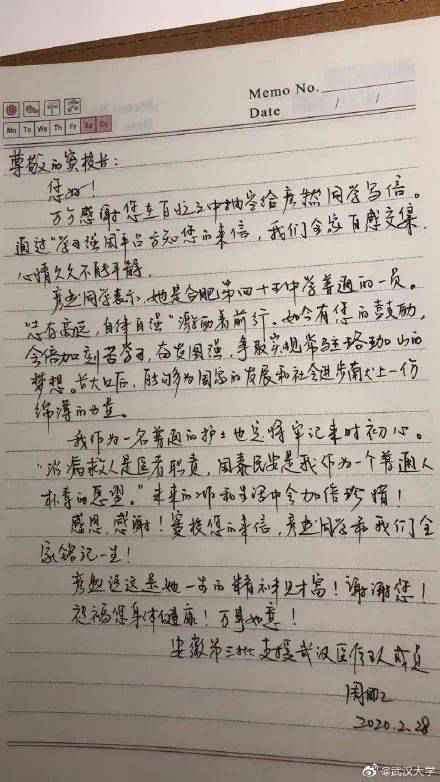 Memo No.
Date / /
Mo Tu We Th Fr Sa Su
尊敬的窦校长：
您好！
万分感谢您在百忙之中抽空给彦然同学写信。
通过“学习强国”平台方知您的来信，我们全家百感交集，
心情久久不能平静。
彦然同学表示，她是合肥第四十五中学普通的一员。
“志存高远，自律自强”激励着前行。如今有您的鼓励，
会倍加刻苦学习，奋发图强，争取实现常驻珞珈山的
梦想。长大以后，能够为国家的发展和社会进步献上一份
绵薄的力量。
我作为一名普通的护士也定将牢记来时初心。
“治病救人是医者职责，国泰民安是我作为一个普通人
朴素的愿望。”未来的工作和生活中会加倍珍惜！
感恩，感谢！窦校长您的来信，彦然同学和我们全
家铭记一生！
彦然说这是她一生的精神财富！谢谢您！
祝福您身体健康！万事如意！
安徽第三批支援武汉医疗队成员
2020.2.28
@武汉大学